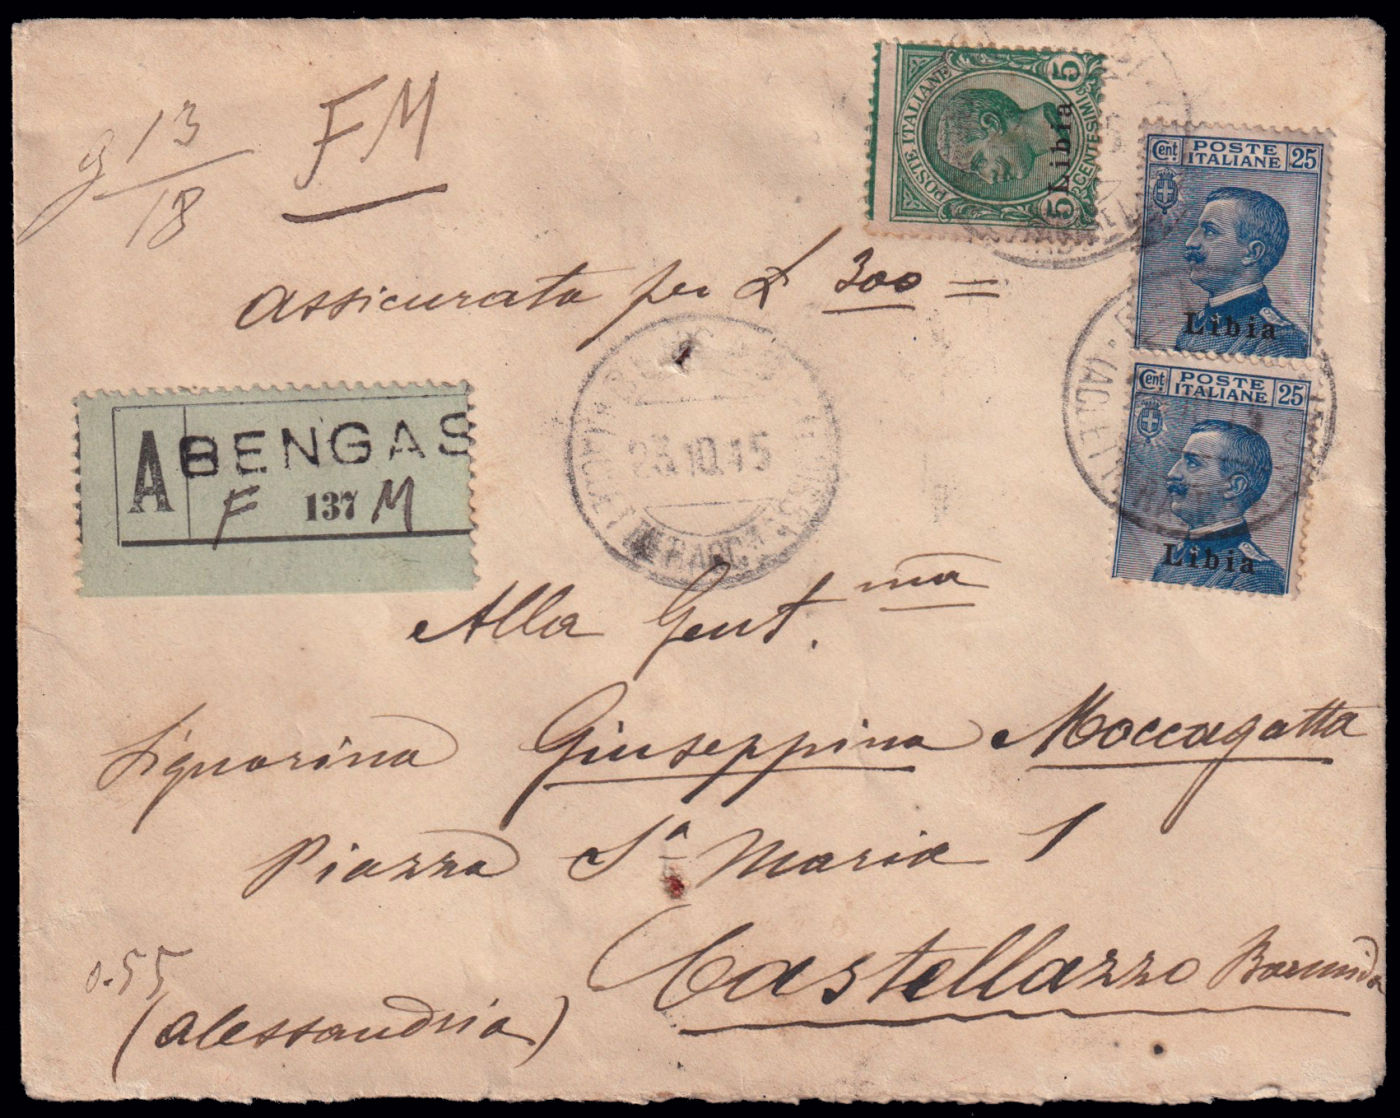 g 13/18
FM
POSTE ITALIANE
5 CENTESIMI 5
Libia
Cent. POSTE ITALIANE 25
Libia
Cent. POSTE ITALIANE 25
Libia
assicurata per £ 300 =
A BENGAS
F 137 M
23.10.15
Alla Gent.ma
Signorina Giuseppina Moccagatta
Piazza Sa Maria 1
Castellazzo Bormida
0.55
(Alessandria)